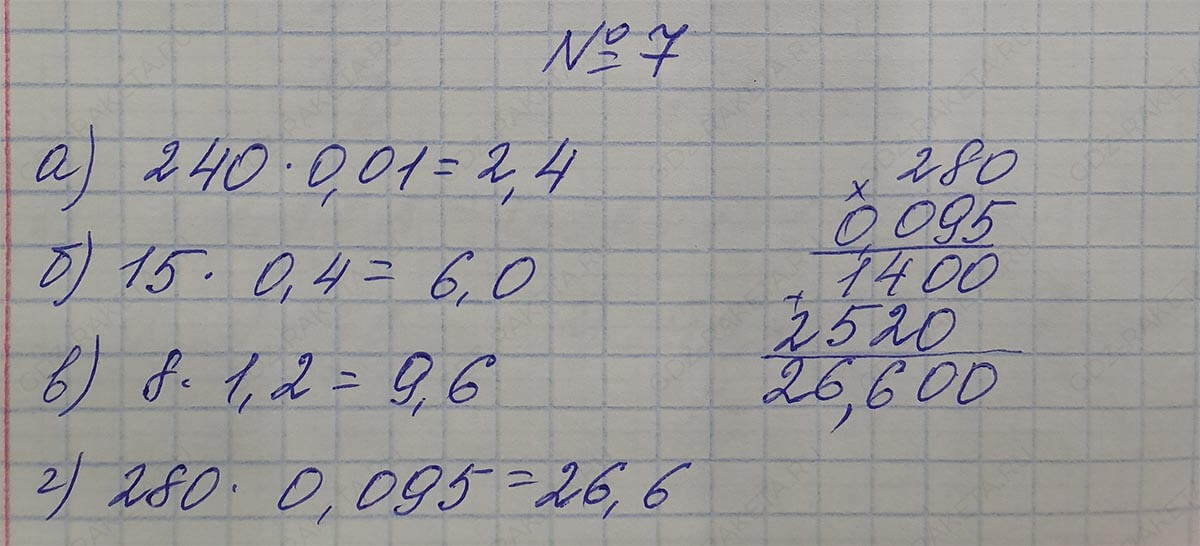 № 7
а) 240 · 0,01 = 2,4
б) 15 · 0,4 = 6,0
в) 8 · 1,2 = 9,6
г) 280 · 0,095 = 26,6
× 280
0,095
1400
+ 2520
26,600
GDZ-RAKETA.RU